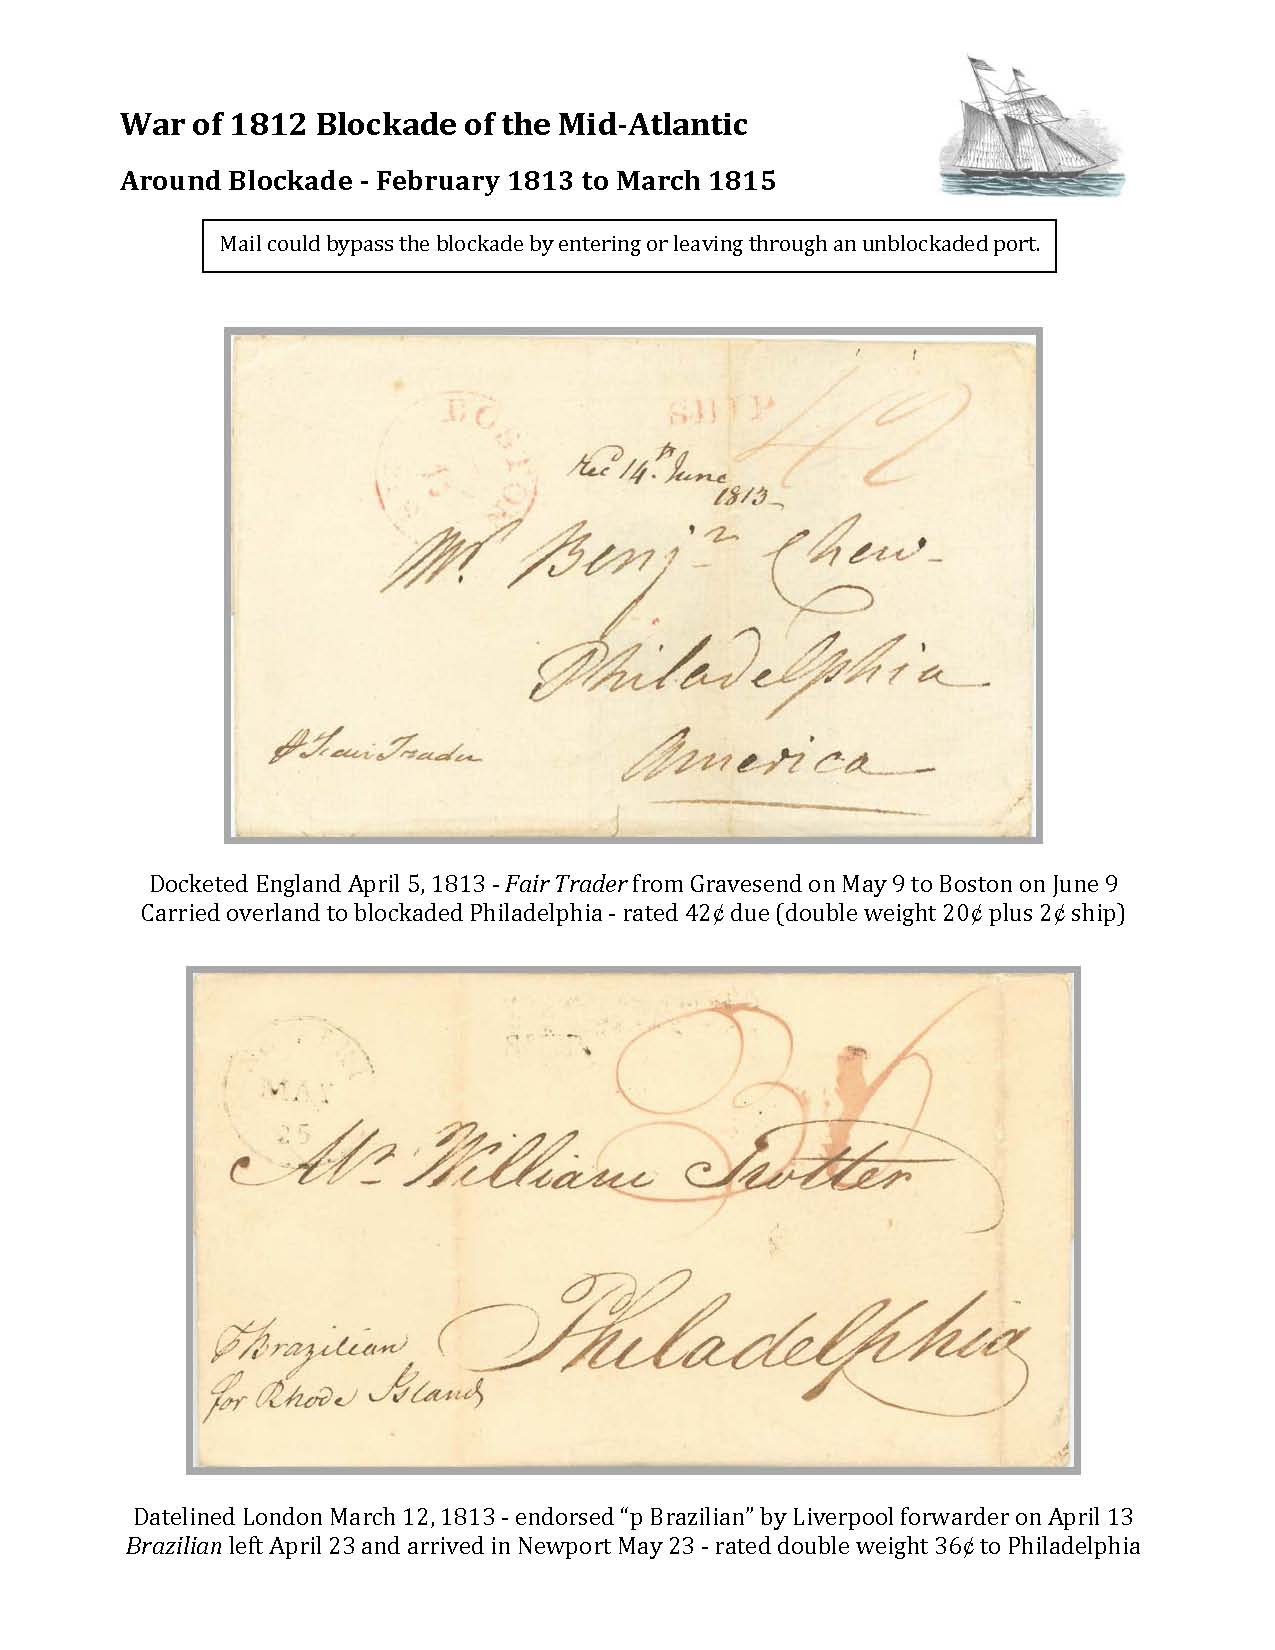 War of 1812 Blockade of the Mid-Atlantic
Around Blockade - February 1813 to March 1815
Mail could bypass the blockade by entering or leaving through an unblockaded port.
BOSTON
SHIP
42
Recd 14th June
1813
Mr. Benjn Chew
Philadelphia
America
p Fair Trader
Docketed England April 5, 1813 - Fair Trader from Gravesend on May 9 to Boston on June 9
Carried overland to blockaded Philadelphia - rated 42¢ due (double weight 20¢ plus 2¢ ship)
36
MAY
25
Mr William Trotter
Philadelphia
p Brazilian
for Rhode Island
Datelined London March 12, 1813 - endorsed “p Brazilian” by Liverpool forwarder on April 13
Brazilian left April 23 and arrived in Newport May 23 - rated double weight 36¢ to Philadelphia